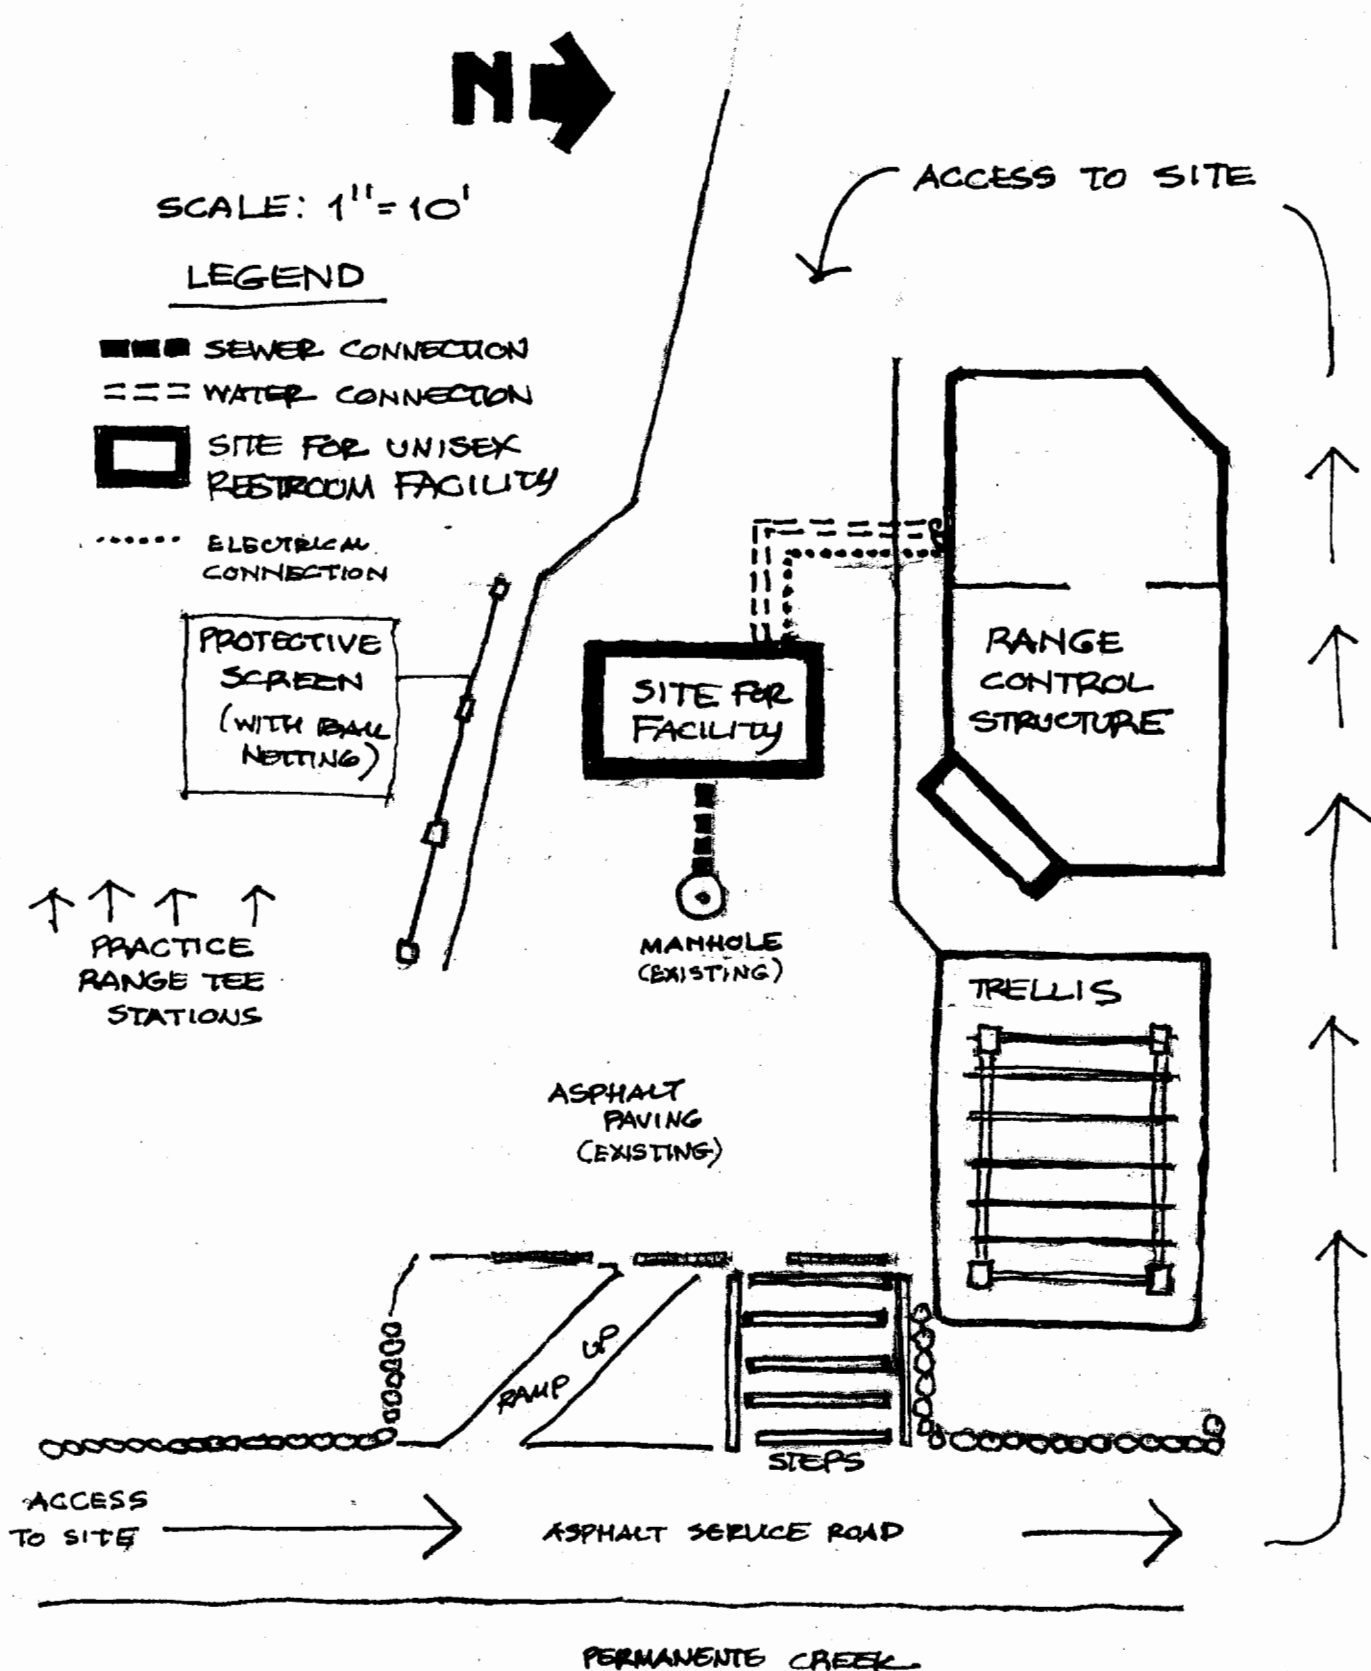 N
ACCESS TO SITE
SCALE: 1"=10'
LEGEND
SEWER CONNECTION
WATER CONNECTION
SITE FOR UNISEX
RESTROOM FACILITY
ELECTRICAL
CONNECTION
PROTECTIVE
SCREEN
(WITH BALL
NETTING)
SITE FOR
FACILITY
RANGE
CONTROL
STRUCTURE
PRACTICE
RANGE TEE
STATIONS
MANHOLE
(EXISTING)
TRELLIS
ASPHALT
PAVING
(EXISTING)
RAMP UP
STEPS
ACCESS
TO SITE
ASPHALT SERVICE ROAD
PERMANENTE CREEK